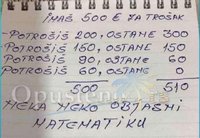 IMAŠ 500 € ZA TROŠAK
POTROŠIŠ 200, OSTANE 300
POTROŠIŠ 150, OSTANE 150
POTROŠIŠ 90, OSTANE 60
POTROŠIŠ 60, OSTANE 0
500 510
NEKA NEKO OBJASNI
MATEMATIKU